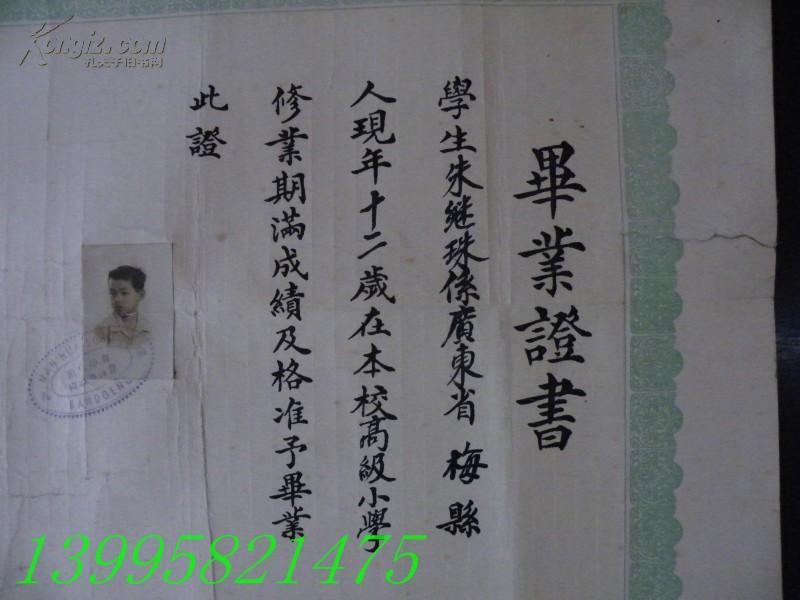 畢業證書
學生朱継珠係廣東省梅縣
人現年十二歲在本校高級小學
修業期滿成績及格准予畢業
此證
Kongfz.com
孔夫子旧书网
BANDOENG
13995821475